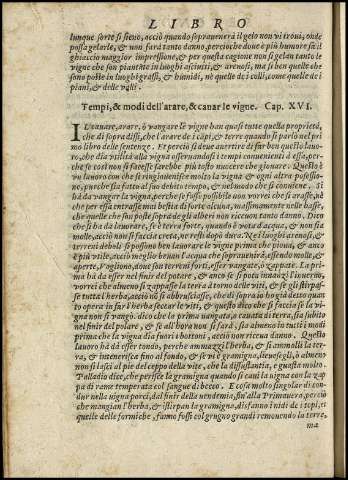 LIBRO
lunque sorte si sieno, acciò quando sopraverrà il gelo non vi troui, onde
possa gelarle, & non farà tanto danno, percioche done è più humore fa il
ghiaccio maggior impressione, & per questa cagione non si gelan tanto le
vigne che son piantate in luoghi asciutti, & arenosi, ma si ben quelle che
sono poste in luoghi grassi, & humidi, nè quelle de i colli, come quelle de i
piani, & delle valli.
Tempi, & modi dell'arare, & cauar le vigne. Cap. XVI.
IL cauare, arare, ò vangare le vigne han quasi tutte quella proprietà,
che di sopra dissi, che l'arare de i capi, & terre quando si parlò nel pri
mo libro delle sentenze. Et perciò si deue auertire di far ben questo lauo-
ro, che dia vtilità alla vigna osseruando si i tempi conuenienti à essa, per-
che se così non si facesse sarebbe più tosto nuocere che giouare. Questo è
vn lauoro con che si ringiouenisce molto la vigna & ogni altra possessio-
ne, purche sia fatto al suo debito tempo, & nel modo che si conuiene. Si
hà da vangar la vigna, perche se fosse possibile non vorrei che si arasse, nè
che per essa intrasse mai bestia di sorte alcuna, massimamente nelle basse,
che quelle che sui poste sopra de gli alberi non riceuon tanto danno. Dico
che si hà da lauorare, se è terra forte, quando è vota d'acqua, & non sia
molle, acciò non si faccia creta, che resti dopò dura. Ne i luoghi arenosi, &
terreni deboli si possono ben lauorare le vigne prima che pioua, & anco
è più vtile, acciò meglio beuan l'acqua che soprauenirà, essendo molle, &
aperte, vogliono, doue son terreni forti, esser vangate, ò zappate. La pri-
ma hà da esser nel finir del potare, & anco se si potà innanzi l'inuerno,
vorrei che almeno si zappasse la terra à torno delle viti, & se gli stirpas-
se tutta l'herba, acciò nò si abbrusciasse, che di sopra io ho già detto quan
to opera in far l'herba seccar le viti, & questo dico che si faccia se la vi-
gna non si vangò: dico che la prima vangata, ò cauata di terra, sia subito
nel finir del potare, & se all hora non si farà, sia almeno in tutti i modi
prima che la vigna dia fuori i bottoni, acciò non riceua danno. Questo
lauoro hà da esser tondo, perche ammazzi l'herba, & si ammolli la ter-
ra, & intenerisca fino al fondo, & se vi è gramigna, lieuesegli, ò almeno
non si lasci al piè del ceppo della vite, che la distrugge, e guasta molto.
Palladio dice, che perisce la gramigna quando si caui la vigna con la zap
pa di rame temperata col sangue di becco. E cosa molto singolar di con-
dur nella vigna porci, dal finir della vendemia, fin'alla Primauera, perciò
che mangian l'herba, & istirpan la gramigna, disfanno i nidi de i topi, et
quelle delle formiche, fanno fossi col grugno grandi remouendo la terra,
ma